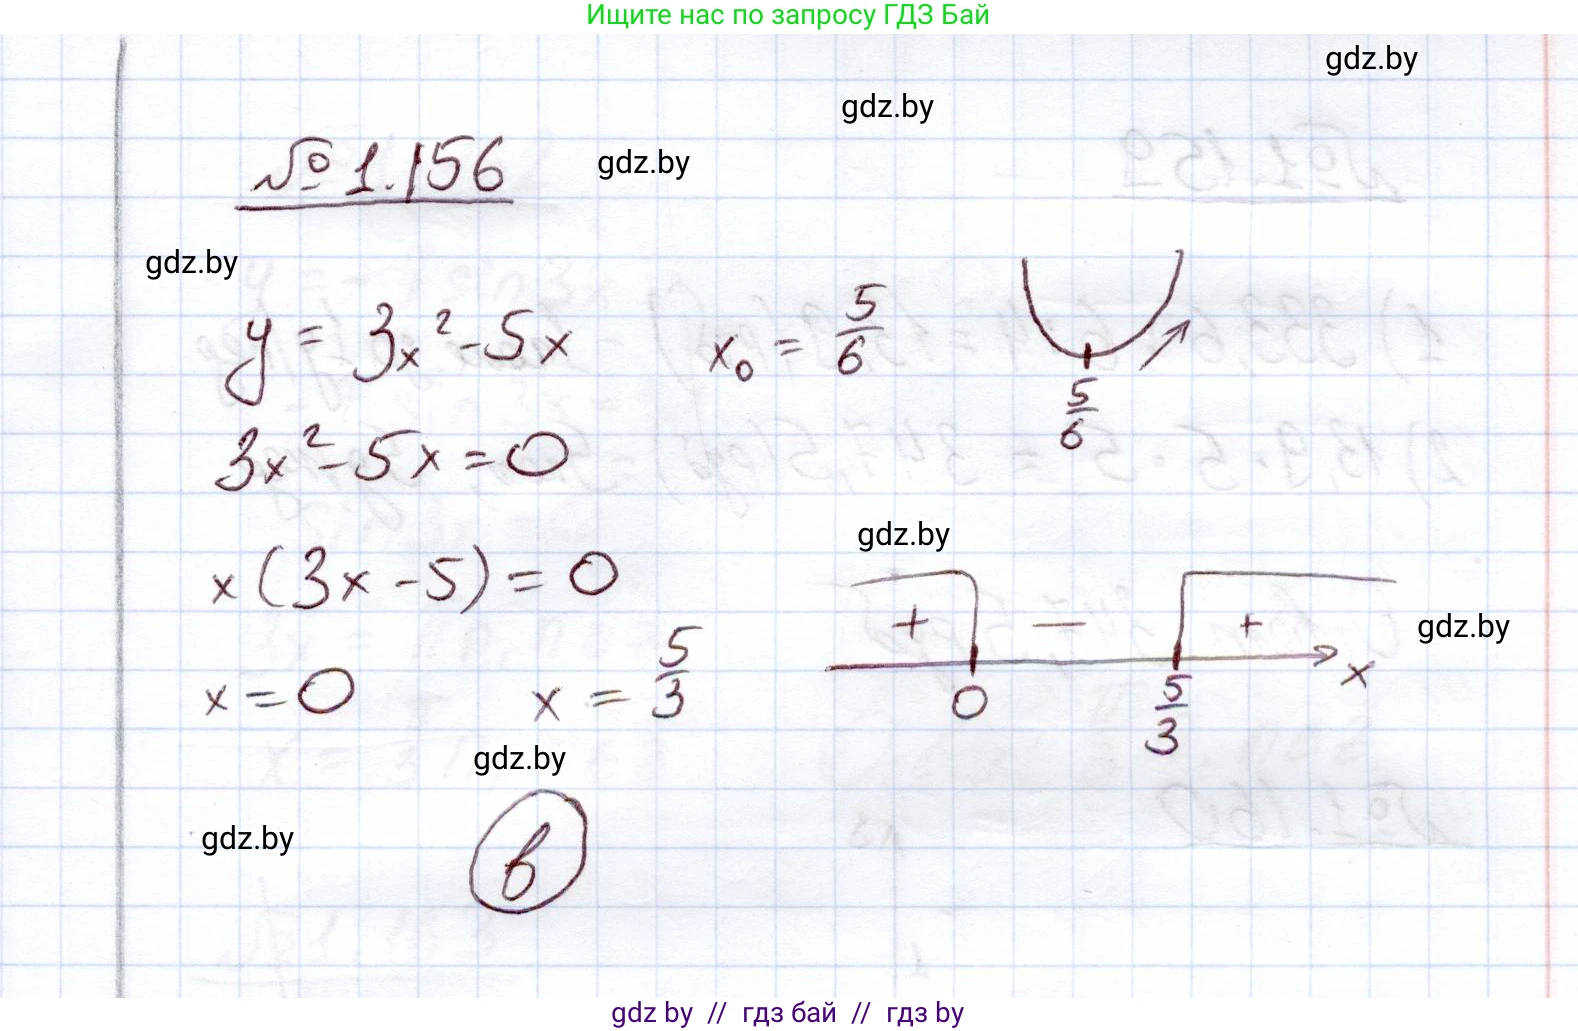 Ищите нас по запросу ГДЗ Бай
gdz.by
gdz.by
№ 1.156
gdz.by
gdz.by
y = 3x² - 5x
x₀ = 5/6
5/6
3x² - 5x = 0
gdz.by
x(3x - 5) = 0
+ − +
gdz.by
x = 0
x = 5/3
0
5/3
x
gdz.by
gdz.by
в
gdz by // гдз бай // гдз by